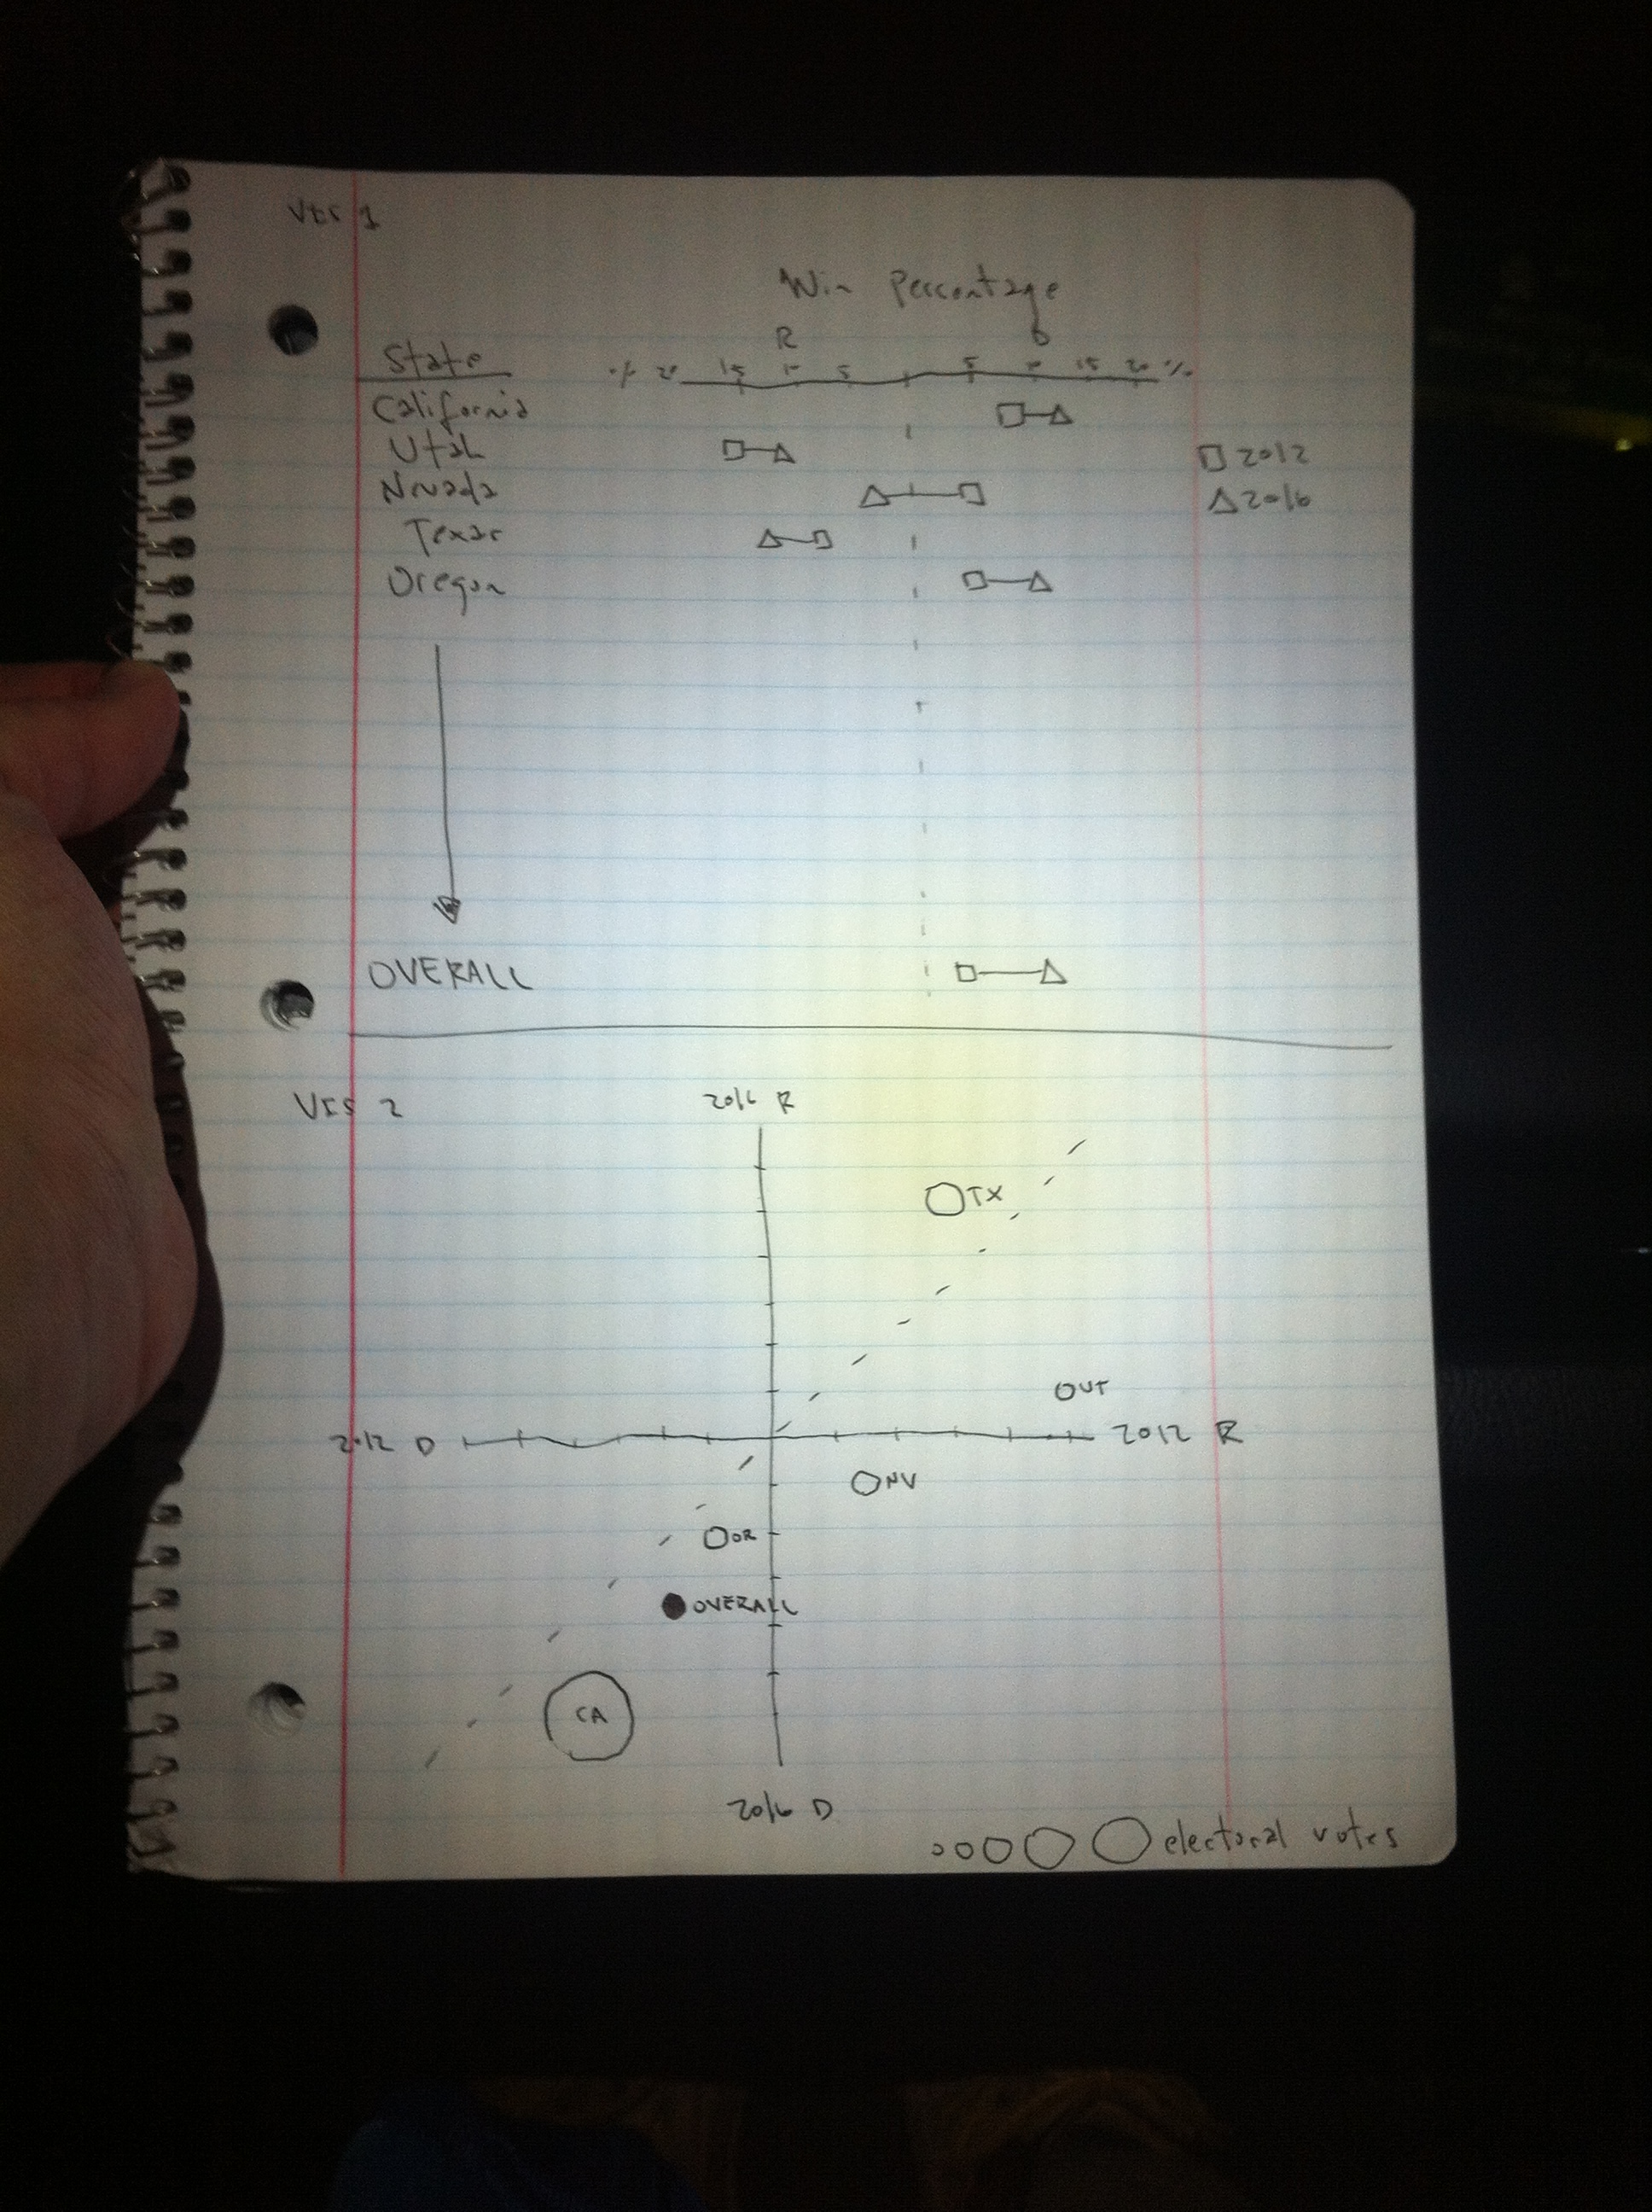 VIS 1
Win Percentage
R D
State % 20 15 10 5 5 10 15 20 %
California
Utah 2012
Nevada 2016
Texas
Oregon
OVERALL
VIS 2
2016 R
TX
UT
2012 D 2012 R
NV
OR
OVERALL
CA
2016 D
electoral votes